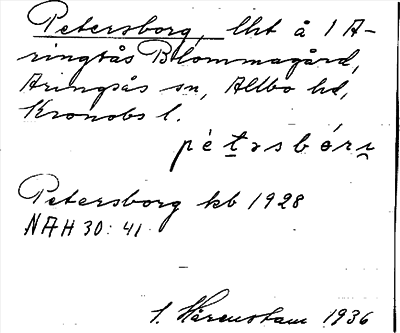 Petersborg, lht å 1 A-
ringsås Blommagård,
Aringsås sn, Allbo hd,
Kronobs l.
pétəsbórı
Petersborg kb 1928
NAH 30:41
S. Wärenstam 1936